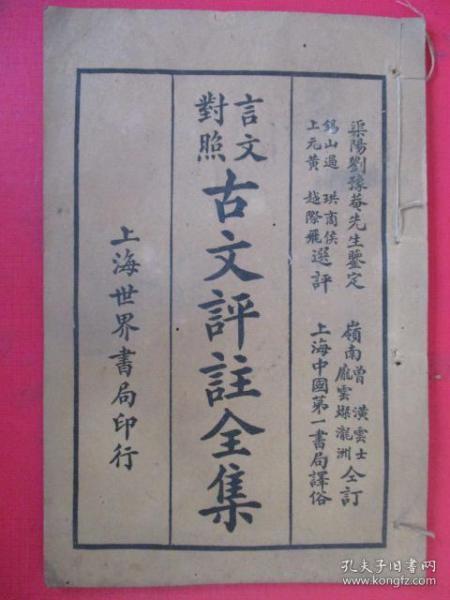 渠陽劉豫菴先生鑒定
錫山過 珙商侯
上元黃 越際飛
選評
嶺南曾 潢雲士
龐雲燦瀧洲
仝訂
上海中國第一書局譯俗
言文
對照
古文評註全集
上海世界書局印行
孔夫子旧书网
www.kongfz.com